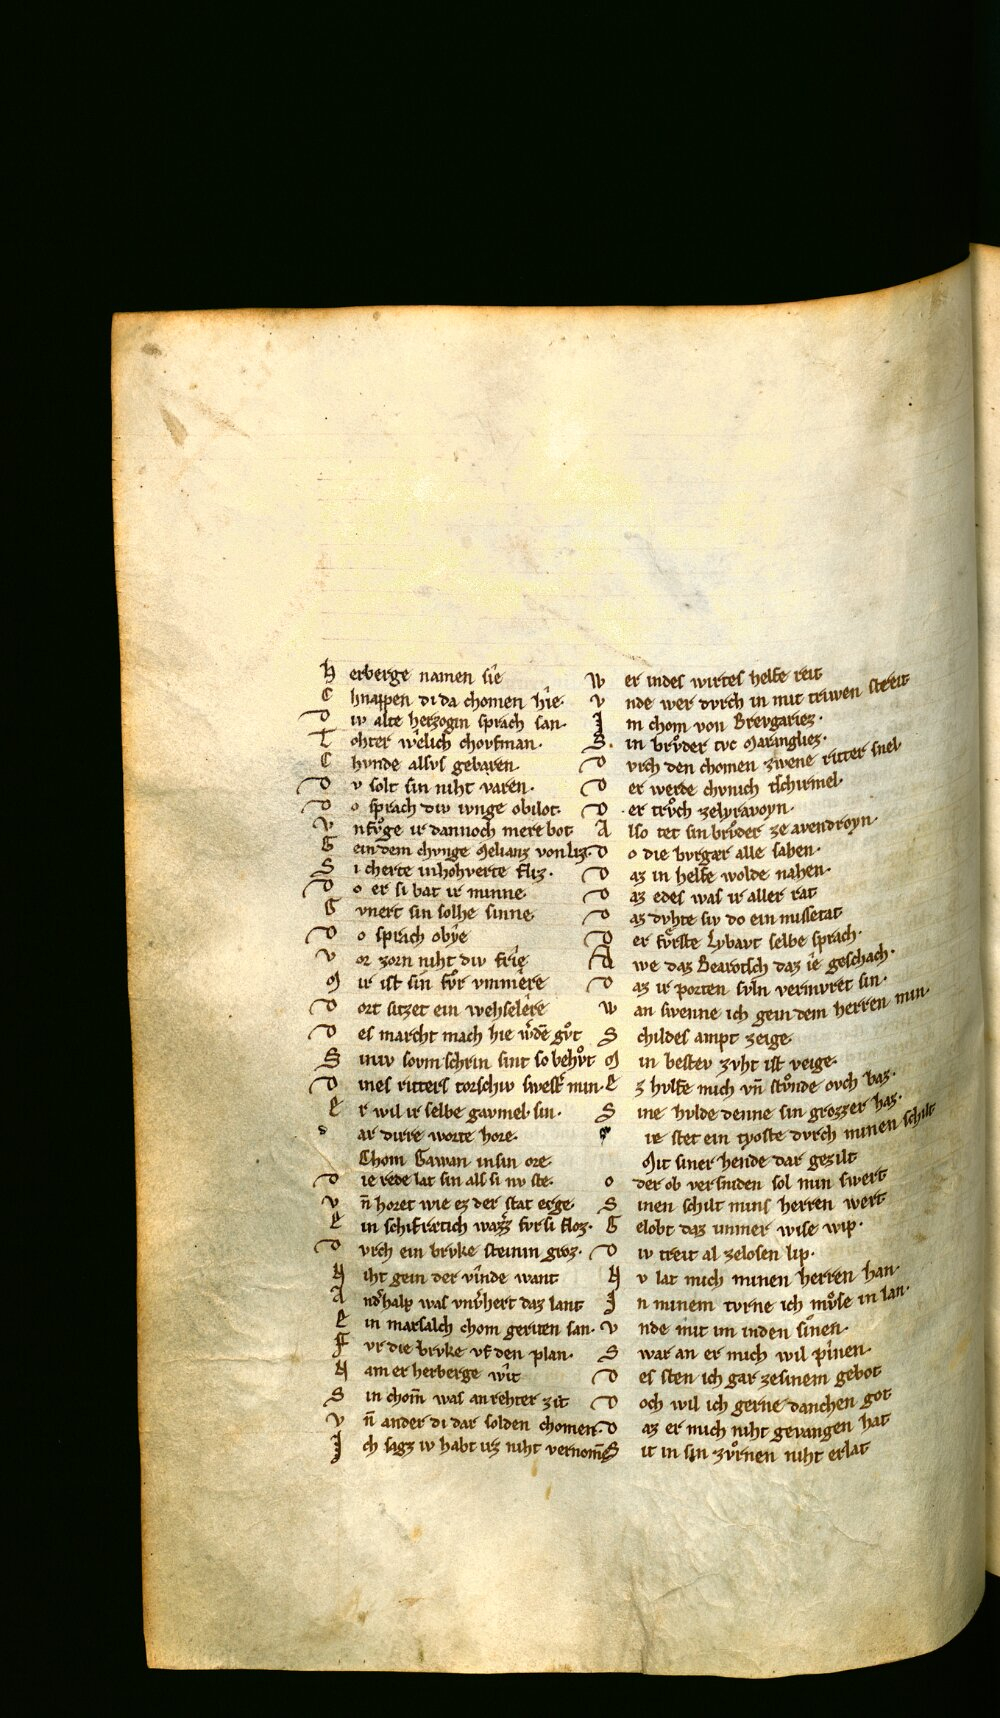 H erberge namen sîe
C hnappen di da chomen hîe·
D iv alte herzogin sprach san·
T ohter wͤlich choufman·
C hvnde allsvs gebaren·
D v solt sin niht varen·
D o sprach div ivnge obilot·
V nfvͦge ir dannoch mere bot
G ein dem chvnge Melianz von liz·
S i cherte in hohverte fliz·
D o er si bat ir minne·
G vnert sin solhe sinne
D o sprach obŷe
V or zorn niht div frîe
M ir ist sin fvͦr vnmêre
D ort sitzet ein wehselêre
D es marcht mach hie wͤdē gvͦt
S iniv sovm schrin sint so behvͦt
D ines ritters torschiv swestͤ min·
E r wil ir selbe gavmel sin·
D ar dirre worte hore·
Chom Gawan in sin ore·
D ie rede lat sin als si nv ste·
V n̄ horet wie ez der stat erge·
E in schifrætich wazzͤ fvr si floz·
D vrch ein brvke steinin groz·
N iht gein der vînde want
A ndͤhalp was vnvͤhert daz lant
E in marsalch chom geriten san·
F vr die brvke vf den plan·
N am er herberge wît
S in chom̄ was an rehter zit
V n̄ ander di dar solden chomen·
I ch sagz iv habt irz niht vernom̄
W er in des wirtes helfe reit
V nde wer dvrch in mit triwen streit
I m chom von Brevgariez·
S in brvͦder tvc Marangliez·
D vrch den chomen zwene ritter snel
D er werde chvnich tschirniel·
D er trvͦch ze lyravoyn·
A lso tet sin brvͦder ze avendroyn·
D o die bvrgær alle sahen·
D az in helfe wolde nahen·
D az e des was ir aller rat
D az dvhte siv do ein missetat
D er fvͤrste Lybavt selbe sprach·
A we daz Bearotsch daz îe geschach·
D az ir porten svln vermvret sin·
W an swenne ich gein dem herren min·
S childes ampt zeige·
M in bestev zvht ist veige·
E z hvlfe mich vn̄ stvͦnde ovch baz·
S ine hvlde denne sin grozzer haz·
ie stet ein tyoste dvrch minen schilt
Mit siner hende dar gezilt
O der ob versniden sol min swert
S inen schilt mins herren wert
G elobt daz immer wise wip·
D iv treit al zelosen lip·
N v lat mich minen herren han·
I n minem tvrne ich mvͦse in lan·
V nde mit im in den sînen·
S war an er mich wil pînen·
D es sten ich gar ze sinem gebot
D och wil ich gerne danchen got
D az er mich niht gevangen hat
S it in sin zvͦrnen niht erlat